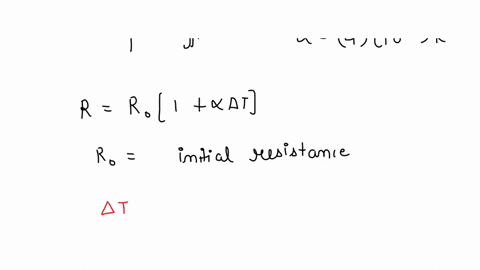 R = R₀[1 + αΔT]
R₀ = initial resistance
ΔT